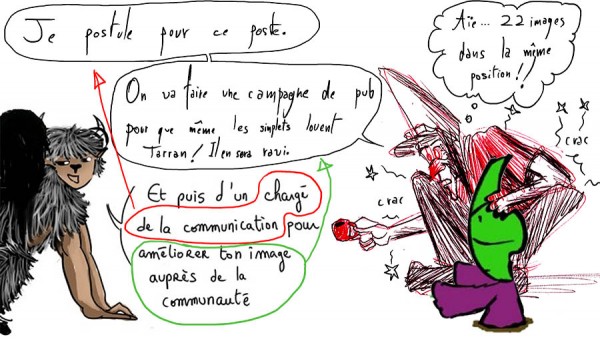 Je postule pour ce poste.
Aïe... 22 images
dans la même
position!!
On va faire une campagne de pub
pour que même les simplets louent
Tarran! Il en sera ravi.
crac
crac
crac
Et puis d'un chargé
de la communication pour
améliorer ton image
auprès de la
communauté